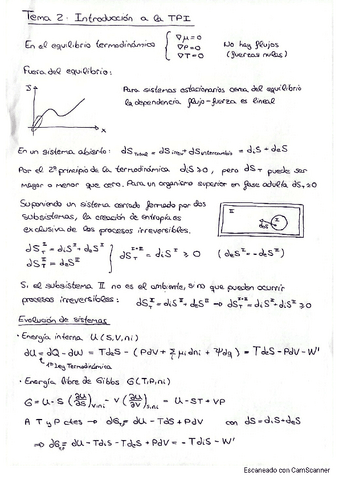 Tema 2. Introducción a la TPI
En el equilibrio termodinámico { ∇μ=0 ∇P=0 ∇T=0 No hay flujos (fuerzas nulas)
Fuera del equilibrio:
J
x
Para sistemas estacionarios cerca del equilibrio
la dependencia flujo-fuerza es lineal
En un sistema abierto: dS_total = dS_irrev + dS_intercambio = d_iS + d_eS
Por el 2º principio de la termodinámica d_iS ≥ 0, pero dS_T puede ser
mayor o menor que cero. Para un organismo superior en fase adulta dS_T ≥ 0
Suponiendo un sistema cerrado formado por dos
subsistemas, la creación de entropía es
exclusiva de los procesos irreversibles.
II
I
dS_T^I = d_iS^I + d_eS^I
dS_T^II = d_eS^II
} dS_T^{I+II} = d_iS^I ≥ 0 (d_eS^I = -d_eS^II)
Si el subsistema II no es el ambiente, si no que pueden ocurrir
procesos irreversibles: dS_T^II = d_iS^II + d_eS^II → dS_T^{I+II} = d_iS^I + d_iS^II ≥ 0
Evolución de sistemas
· Energía interna U(S,V,ni)
dU = dQ - dW = TdeS - (PdV + Σ μi dni + Ψdq) = TdeS - PdV - W'
↑ 1ª ley Termodinámica
· Energía libre de Gibbs G(T,P,ni)
G = U - S (∂U/∂S)_{V,ni} - V (∂U/∂V)_{S,ni} = U - ST + VP
A T y P ctes → dG = dU - TdS + PdV con dS = diS + deS
⇒ dG = dU - TdiS - TdeS + PdV = - TdiS - W'
Escaneado con CamScanner